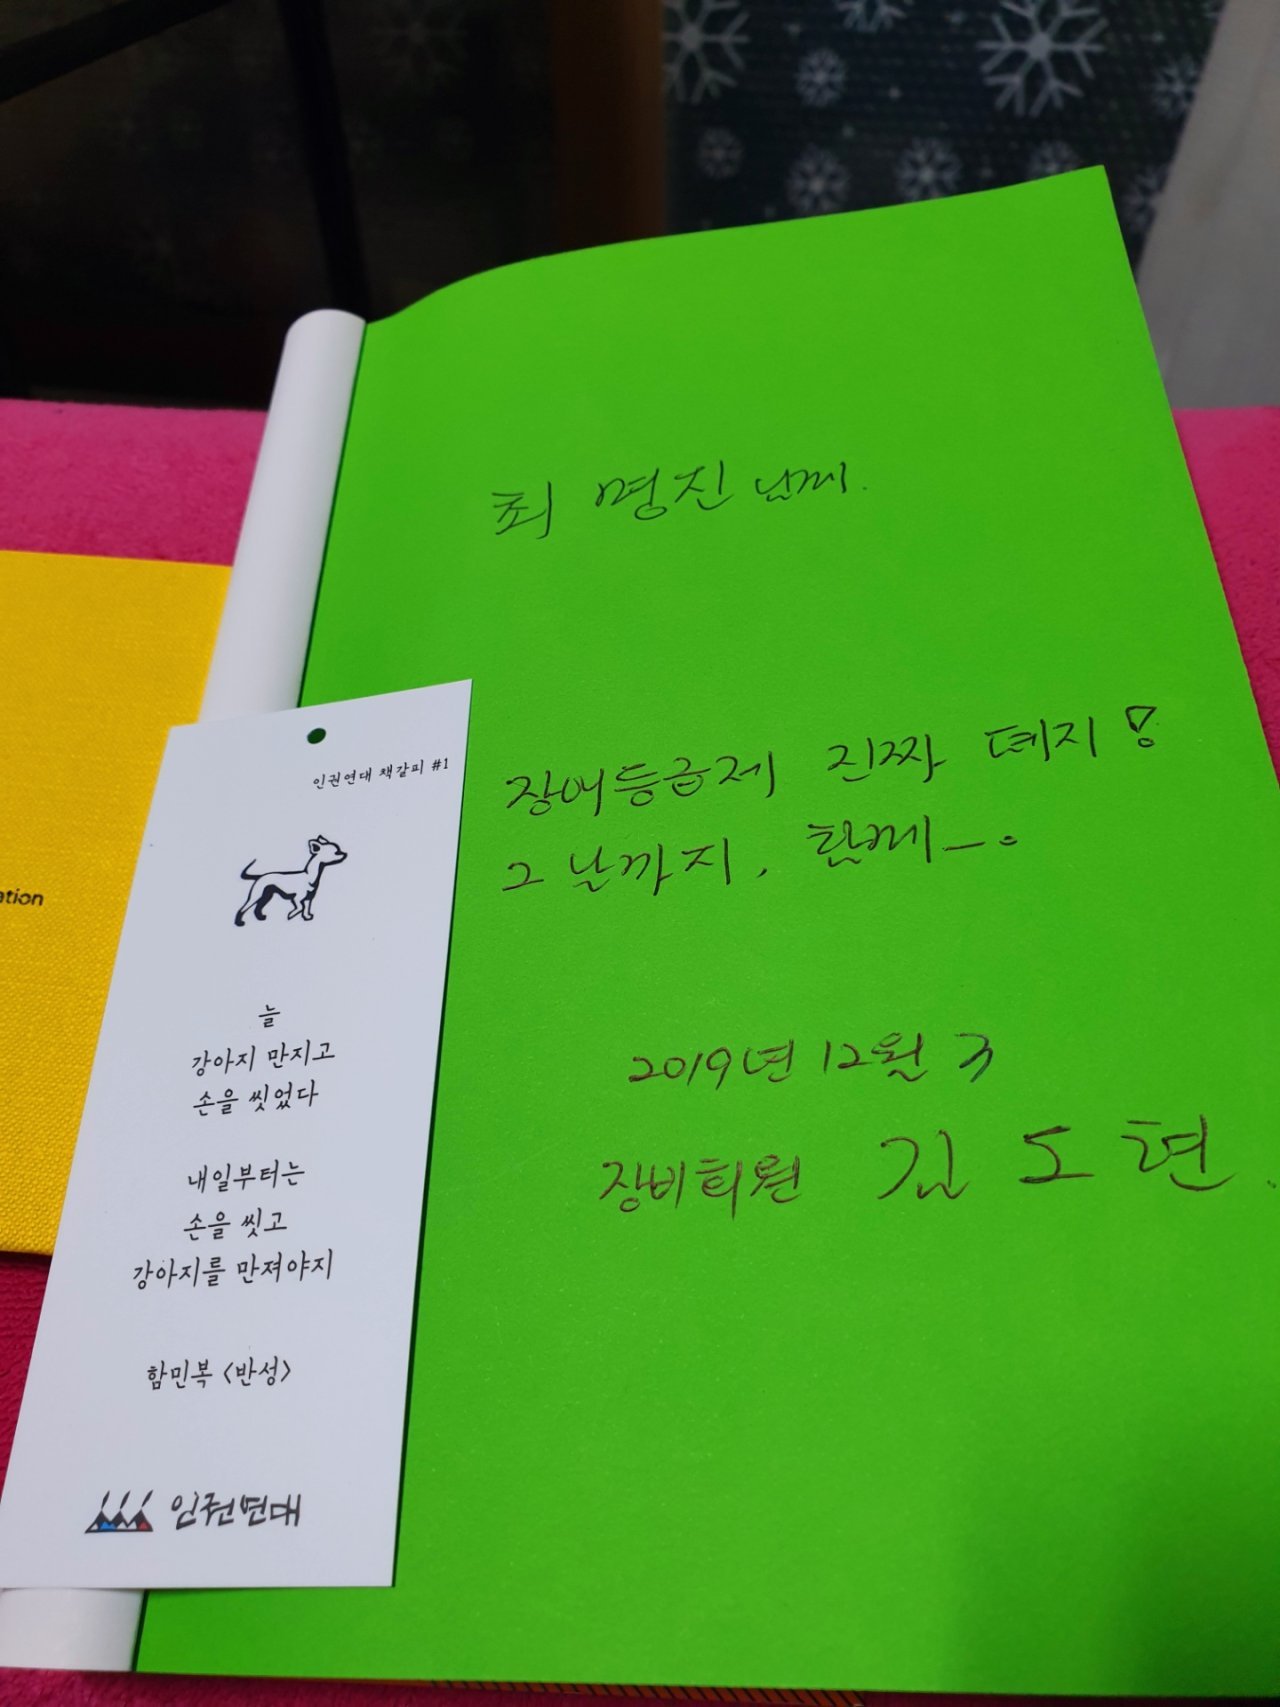 최 명진 님께.
장애등급제 진짜 폐지!
그 날까지, 함께—.
2019년 12월 3
장비회원 김도현.
인권연대 책갈피 #1
늘
강아지 만지고
손을 씻었다
내일부터는
손을 씻고
강아지를 만져야지
함민복 <반성>
인권연대
ation